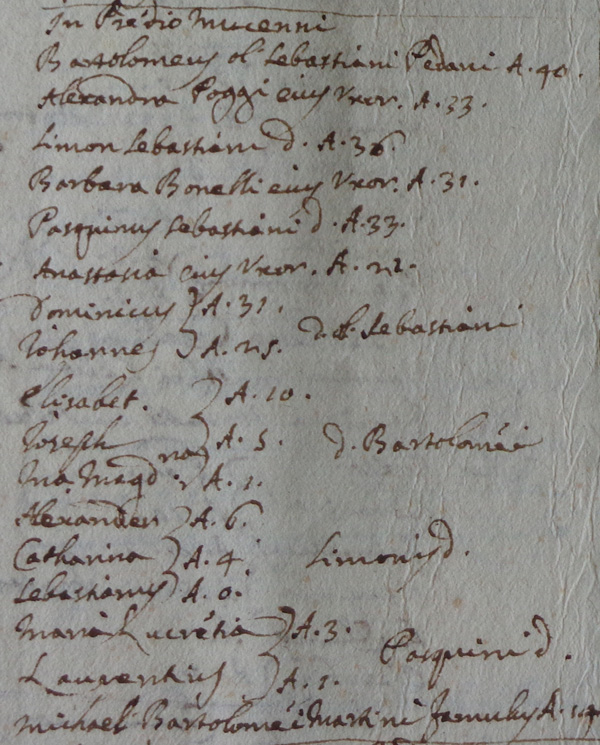 In Prédio Mucenni
Bartolomeus ol. Sebastiani Pedani A. 40.
Alexandra Poggi eius Uxor. A. 33.
Simon Sebastiani d. A. 36.
Barbara Bonelli eius Uxor. A. 31.
Pasquinus Sebastiani d. A. 33.
Anastasia eius Uxor. A. 22.
Dominicus } A. 31.
Iohannes } A. 25. d. ol. Sebastiani
Elisabet. } A. 10.
Ioseph } A. 5. d. Bartoloméi
Ma. Magd.na } A. 1.
Alexander } A. 6.
Catharina } A. 4. Simonis d.
Sebastianus } A. 0.
Maria Lucrétia } A. 3.
Laurentius } A. 1. Pasquini d.
Michael Bartoloméi Martini Famulus A.